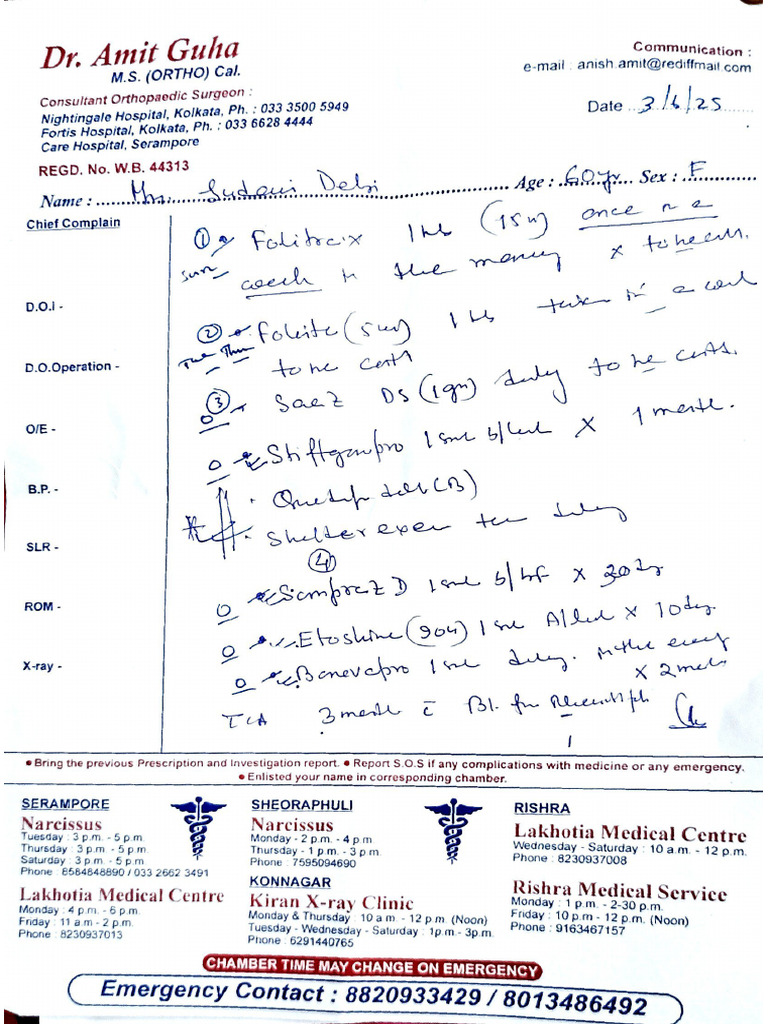 Dr. Amit Guha
M.S. (ORTHO) Cal.
Consultant Orthopaedic Surgeon :
Nightingale Hospital, Kolkata, Ph. : 033 3500 5949
Fortis Hospital, Kolkata, Ph. : 033 6628 4444
Care Hospital, Serampore
REGD. No. W.B. 44313
Communication :
e-mail : anish.amit@rediffmail.com
Date 3/6/25
Name : Mrs. Debi Age : 60yr Sex : F
Chief Complain
D.O.I -
D.O.Operation -
O/E -
B.P. -
SLR -
ROM -
X-ray -
① Folitrax 1 tab (15 once in a
week in the x to be cont.
② 1 tab in a week
to be cont
③ Saaz DS (1gm) daily to be cont.
1 x 1 month.
(B)
daily
④
D 1 x 30 day
Etoshine (90 1 x 10 day.
1 daily. in the
x 2
3 month c̄ Bl. for
• Bring the previous Prescription and Investigation report. • Report S.O.S if any complications with medicine or any emergency.
• Enlisted your name in corresponding chamber.
SERAMPORE
Narcissus
Tuesday : 3 p.m. - 5 p.m.
Thursday : 3 p.m. - 5 p.m.
Saturday : 3 p.m. - 5 p.m
Phone : 8584848890 / 033 2662 3491
Lakhotia Medical Centre
Monday : 4 p.m. - 6 p.m.
Friday : 11 a.m - 2 p.m.
Phone : 8230937013
SHEORAPHULI
Narcissus
Monday - 2 p.m. - 4 p.m
Thursday - 1 p.m. - 3 p.m.
Phone : 7595094690
KONNAGAR
Kiran X-ray Clinic
Monday & Thursday : 10 a.m - 12 p.m. (Noon)
Tuesday - Wednesday - Saturday : 1p.m.- 3p.m.
Phone : 6291440765
RISHRA
Lakhotia Medical Centre
Wednesday - Saturday : 10 a.m. - 12 p.m.
Phone : 8230937008
Rishra Medical Service
Monday : 1 p.m. - 2-30 p.m.
Friday : 10 p.m - 12 p.m. (Noon)
Phone : 9163467157
CHAMBER TIME MAY CHANGE ON EMERGENCY
Emergency Contact : 8820933429 / 8013486492